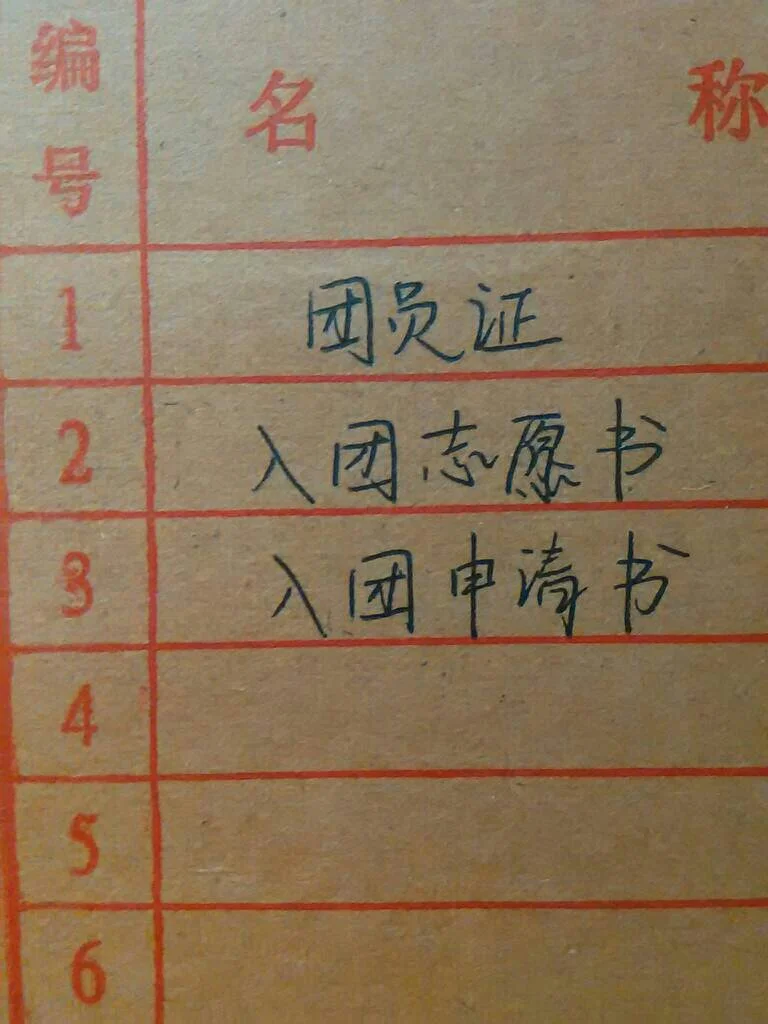 编号 名称
1 团员证
2 入团志愿书
3 入团申请书
4
5
6